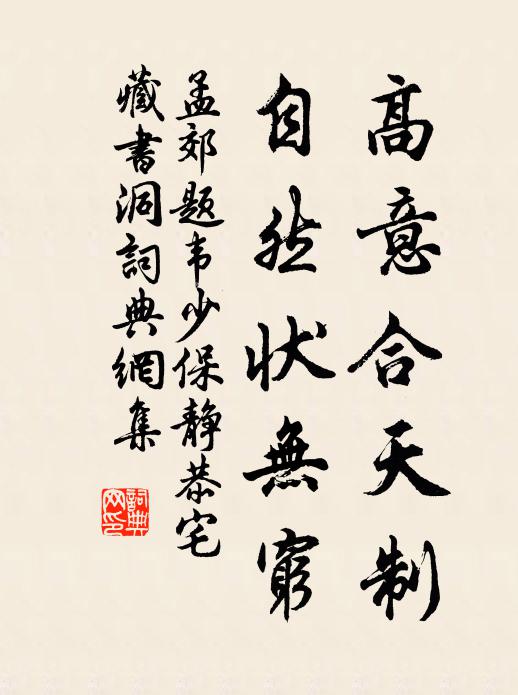 高意合天制
自然状無窮
孟郊题韦少保静恭宅
藏書洞詞典網集
詞典
网印